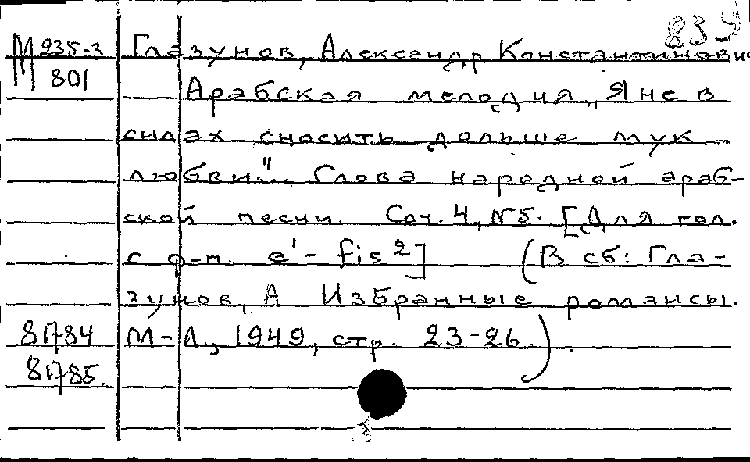 839
М 235-3 Глазунов, Александр Константинович
801 Арабская мелодия „Я не в
силах сносить дольше мук
любви". Слова народной араб-
ской песни. Соч. 4, №5. [Для гол.
с ф-п. e'- fis²] (В сб: Гла-
зунов, А Избранные романсы.
81784 М-Л, 1949, стр. 23-26).
81785.